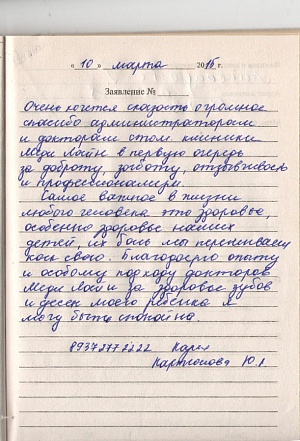 « 10 » марта 2015 г.
Заявление №
Очень хочется сказать огромное
спасибо администраторам
и докторам стом клиники
Меди Лайн в первую очередь
за доброту, заботу, отзывчивость
и профессионализм.
Самое важное в жизни
любого человека это здоровье,
особенно здоровье наших
детей, их боль мы переживаем
как свою. Благодарю опыту
и особому подходу докторов
Меди Лайн за здоровье зубов
и десен моего ребенка я
могу быть спокойна.
89372772222
Ю.А.